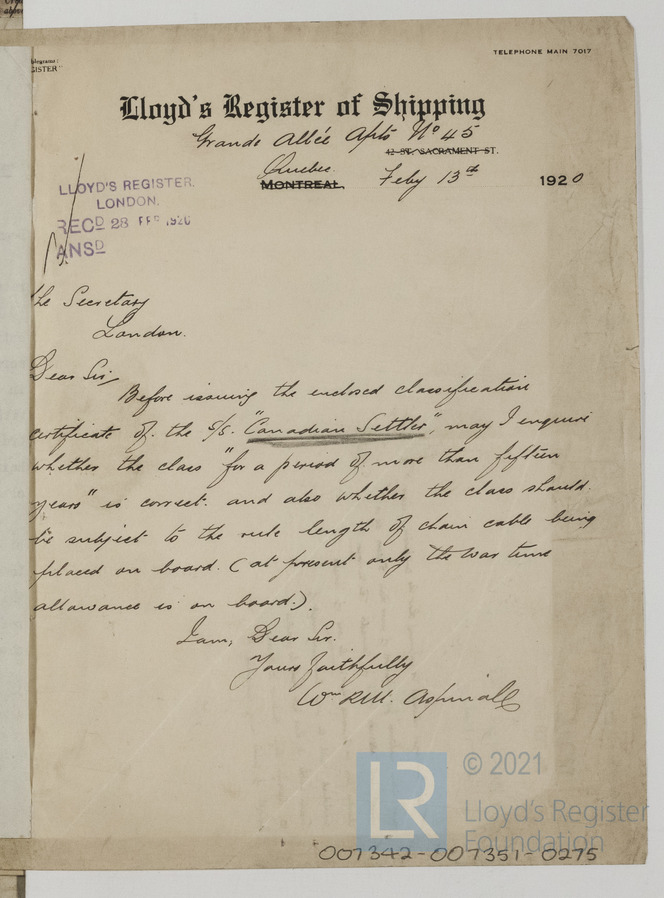 TELEPHONE MAIN 7017
GISTER"
Lloyd's Register of Shipping
Grande Allée Apts No 45
42 ST. SACRAMENT ST.
Quebec
MONTREAL, Feby 13th 1920
LLOYD'S REGISTER.
LONDON.
RECD 28 FEB 1920
ANSD
the Secretary
London.
Dear Sir,
Before issuing the enclosed classification
certificate of the S/S. "Canadian Settler", may I enquire
whether the class "for a period of more than fifteen
years" is correct. and also whether the class should
be subject to the rule length of chain cable being
placed on board. (at present only the war time
allowance is on board.).
I am, Dear Sir.
Yours faithfully
Wm R.M. Aspinall
LR
© 2021
Lloyd's Register
Foundation
007342-007351-0275